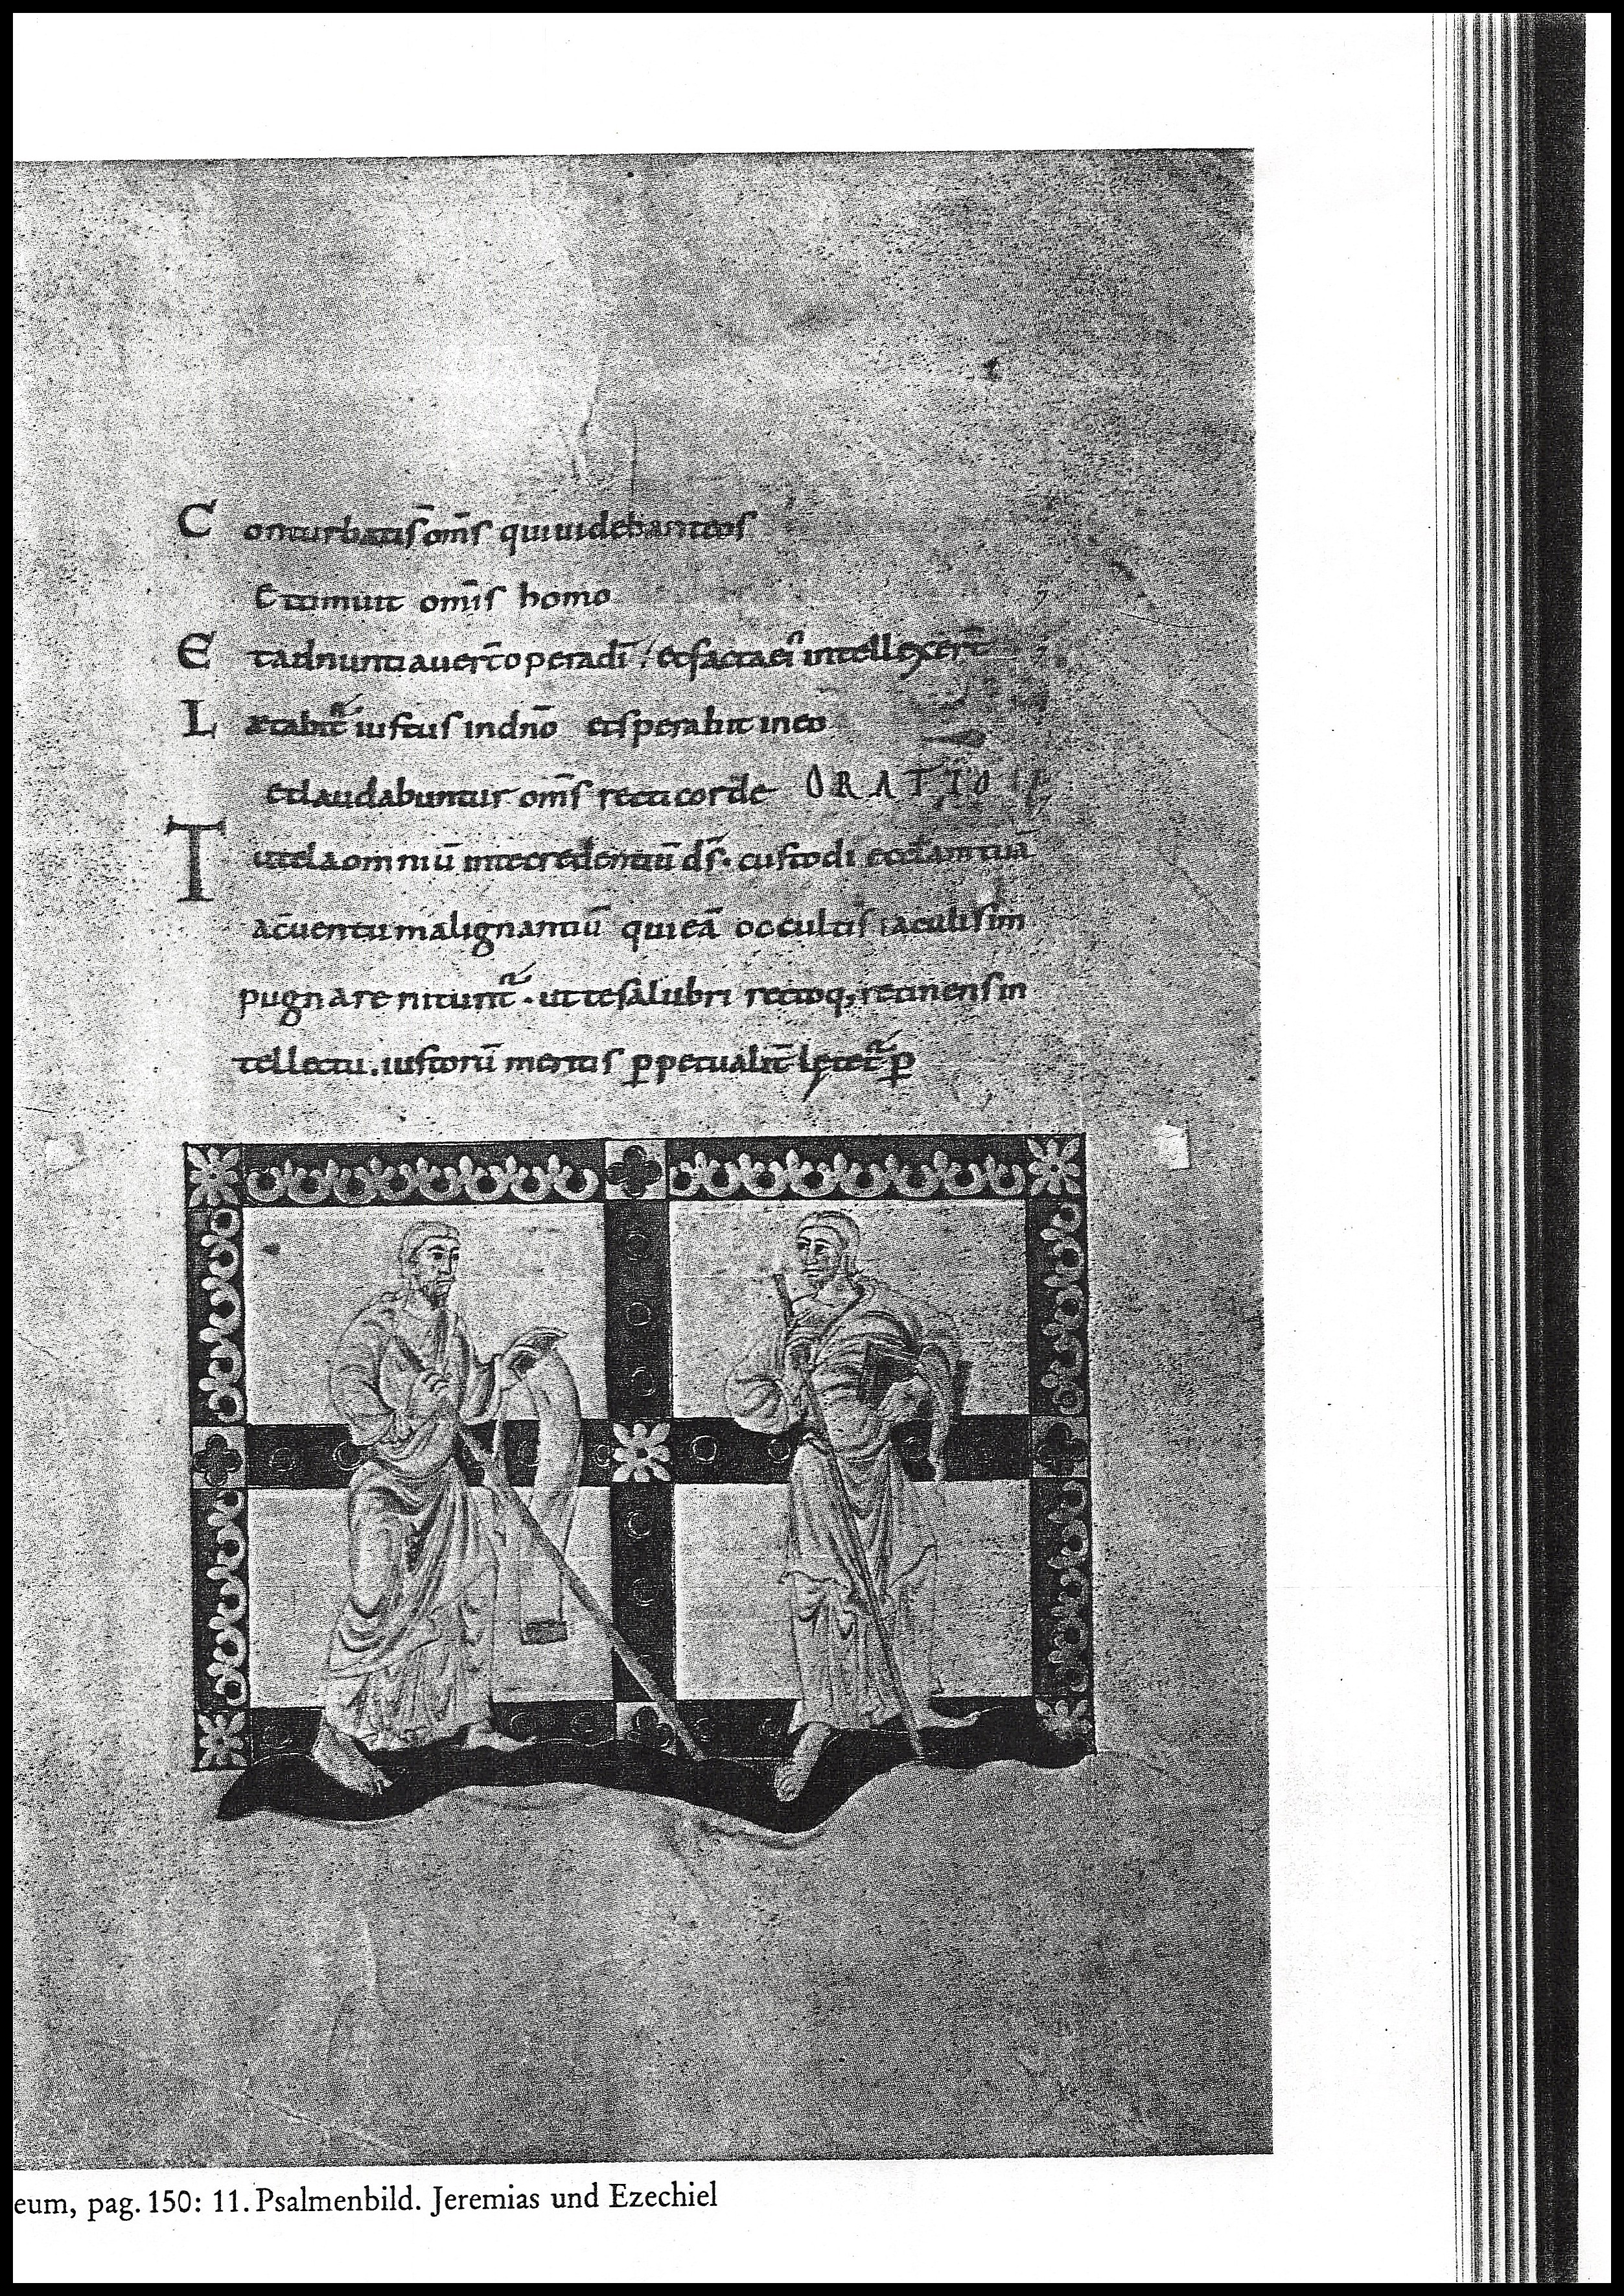 Conturbatis̄ om̄s qui uidebant eos
Et timuit om̄is homo
Et adnuntiauer̄t opera dī / et facta ei intellexer̄t
Lætabit̄ iustus in dn̄o et sperabit in eo
et laudabuntur om̄s recti corde ORATIO
Tutela omniū in te credentiū ds̄. custodi eccl̄am tuā
a c̄uentu malignantiū qui eā occultis iaculis im
pugnare nitunt̄. ut te salubri rectoq; retinens in
tellectu. iustorū meritis ꝑpetualit̄ lętet̄ ꝑ
eum, pag. 150: 11. Psalmenbild. Jeremias und Ezechiel